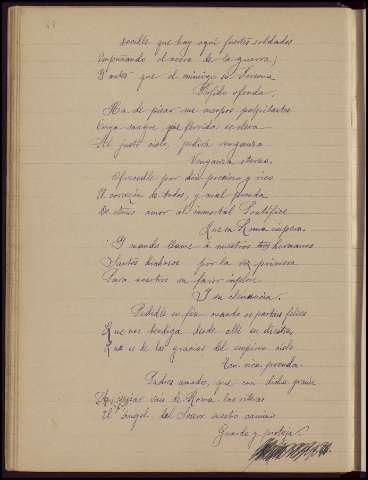 Decidle que hay aquí fuertes soldados
Empuñando el acero de la guerra,
Y antes que el enemigo su
Pérfido ofenda.
Ha de pisar sus cuerpos palpitantes
Cuya sangre que florida
Al justo cielo, pedirá venganza
Venganza eterna.
Ofrecedle por don precioso y rico
El corazón de todos, y cual prenda
De eterno amor al inmortal Pontífice
Que en Roma impera.
Y cuando llame a nuestros tres hermanos
Santos por la vez primera
Para nosotros su favor implore
Y su clemencia.
Pedidle en fin cuando os partais felices
Que nos bendiga desde allí su diestra,
Que es de las gracias del empíreo cielo
Una rica prenda.
Padres amados, que con dicha grande
vais de Roma las riberas
El ángel del Señor vuestro camino
Guarde y proteja.